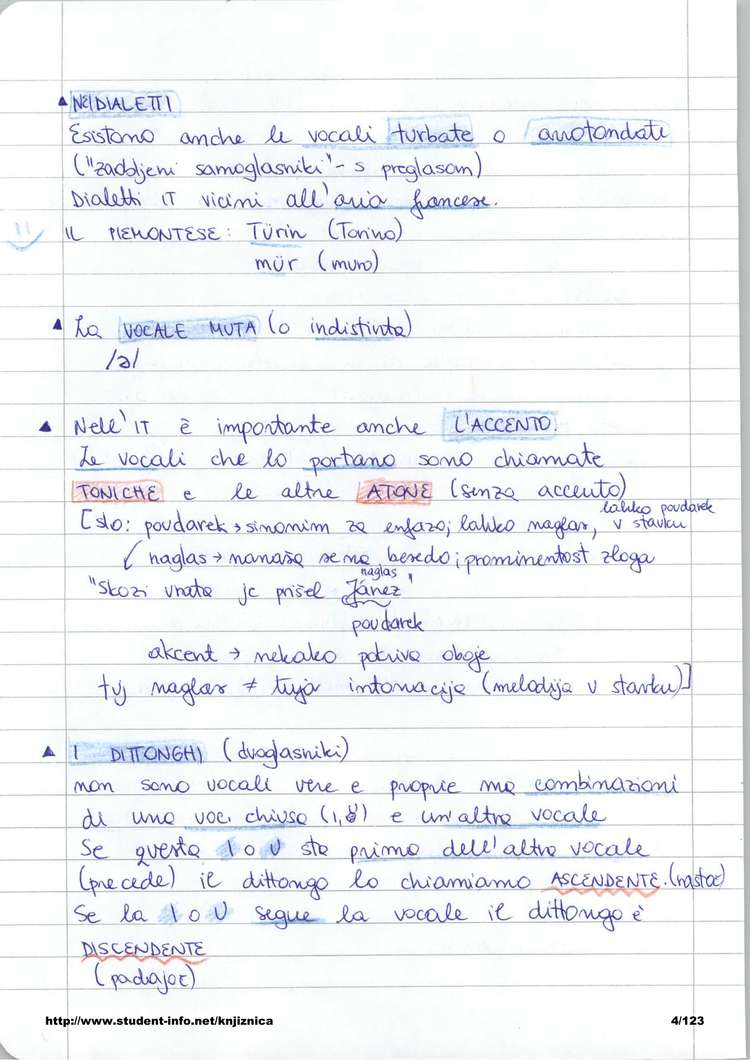 NEI DIALETTI
Esistono anche le vocali turbate o arrotondate
("zaobljeni samoglasniki" - s preglasom)
Dialetti IT vicini all'aria francese.
IL PIEMONTESE: Türin (Torino)
mür (muro)
La VOCALE MUTA (o indistinta)
/ə/
Nell'IT è importante anche L'ACCENTO.
Le vocali che lo portano sono chiamate
TONICHE e le altre ATONE (senza accento)
[slo: poudarek → sinonim za enfazo; lahko naglas, lahko poudarek v stavku
naglas → nanaša se na besedo; prominentost zloga
"Skozi vrata je prišel Jánez"
naglas
poudarek
akcent → nekako pokriva oboje
tuj naglas ≠ tuja intonacija (melodija v stavku)]
I DITTONGHI (dvoglasniki)
non sono vocali vere e proprie ma combinazioni
di una voc. chiusa (i, u) e un'altra vocale
Se questa I o U sta prima dell'altra vocale
(precede) il dittongo lo chiamiamo ASCENDENTE. (rastoč)
Se la I o U segue la vocale il dittongo è
DISCENDENTE
(padajoč)
http://www.student-info.net/knjiznica
4/123